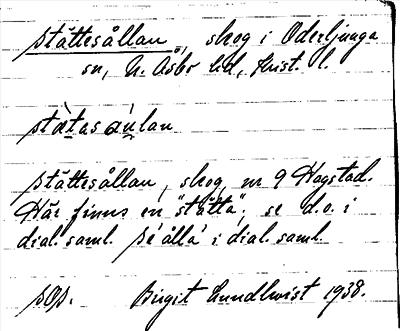 stättesållan, skog i Oderljunga
sn, N. Åsbo hd, Krist. l.
stàtasa᷃u̢lan
stättesållan, skog, nr 9 Hagstad.
Här finns en "stätta", se d.o. i
dial. saml. Se ålla i dial. saml.
Birgit Lundkvist 1938.